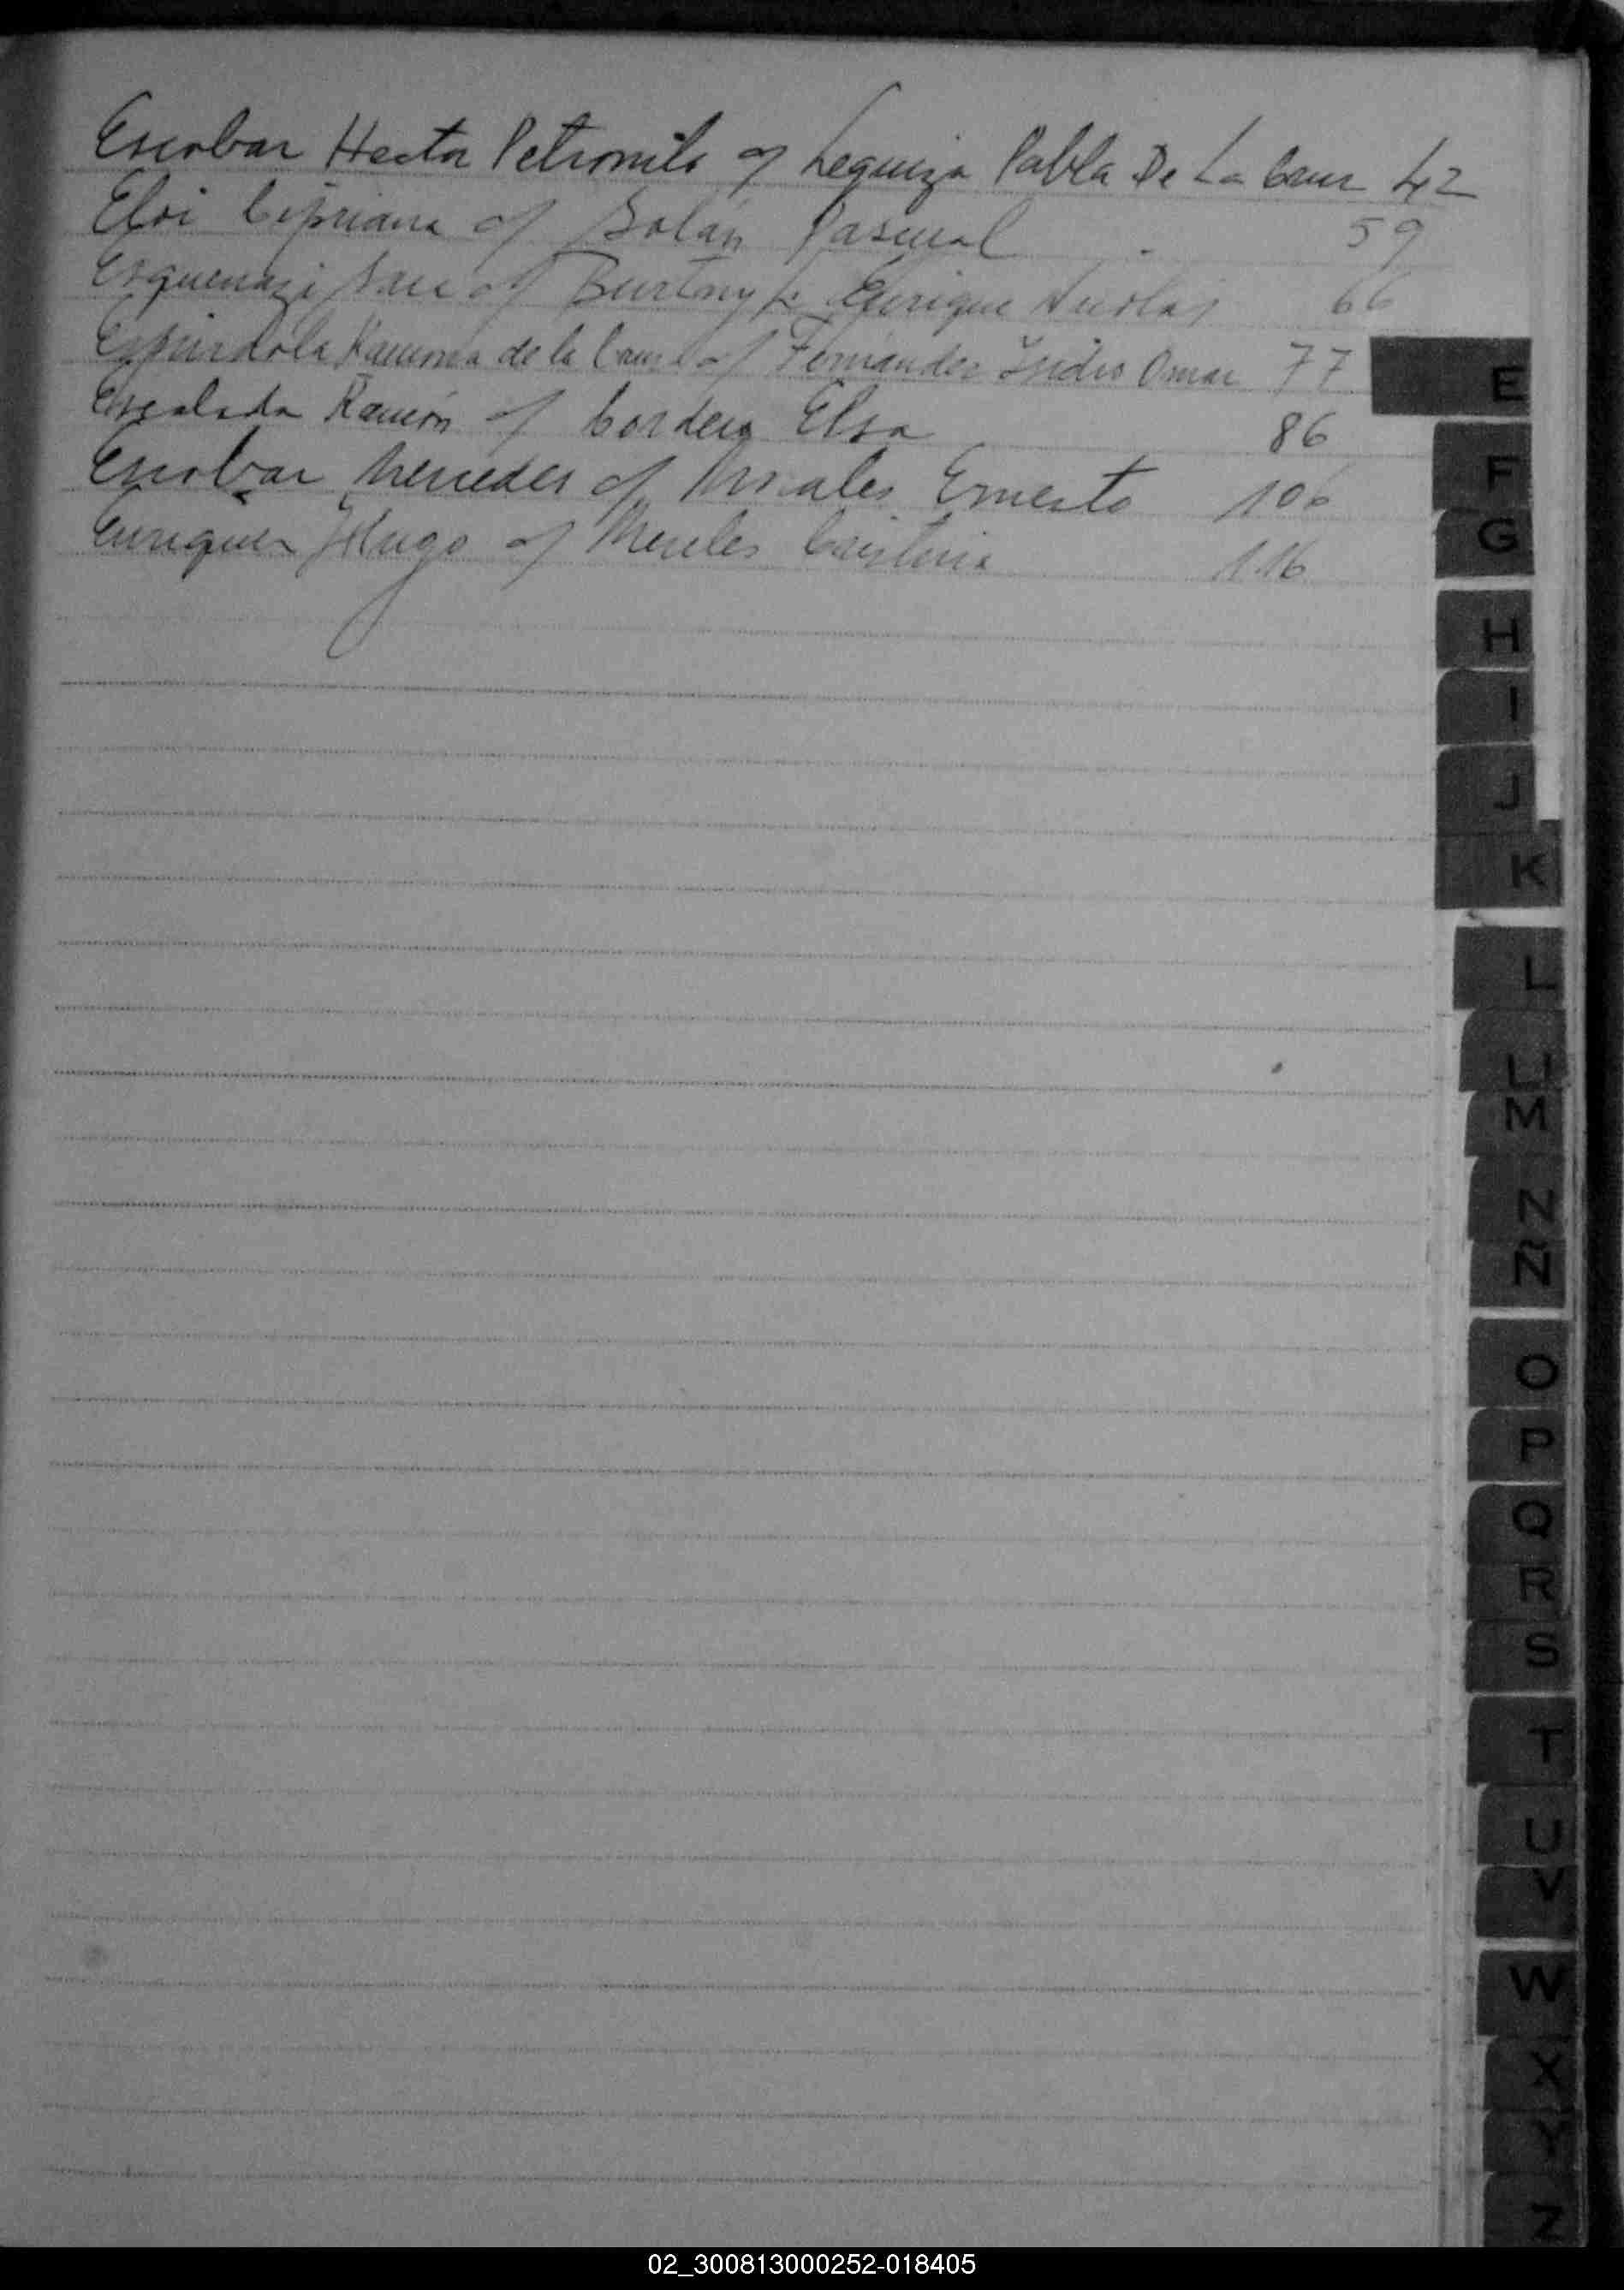 Escobar Hector Petronilo c/ Leguiza Pabla De La Cruz 42
Eloi Cipriana c/ Solán Pascual 59
Esquenazi Sara c/ Enrique Nicolas 66
Espindola Ramona de la Cruz c/ Fernandez Isidro Omar 77
Escalada Ramón c/ Cordero Elsa 86
Escobar Mercedes c/ Morales Ernesto 106
Enriquez Hugo c/ Mereles Cristina 116
E
F
G
H
I
J
K
L
LL
M
N
Ñ
O
P
Q
R
S
T
U
V
W
X
Y
Z
02_300813000252-018405